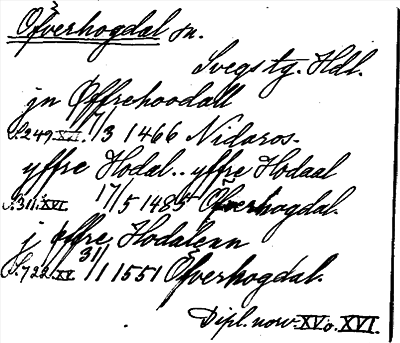 Öfverhogdal sn.
Svegs tg. Hdl.
jn Øffrehoodall
S.249.XVI. 17/3 1466 Nidaros.
yffre Hodal.. yffre Hodaal
S.311.XVI. 17/5 1485 Öfverhogdal.
j øffre Hodalean
S.722.XV. 31/1 1551 Öfverhogdal.
Dipl. norv. XV o. XVI.